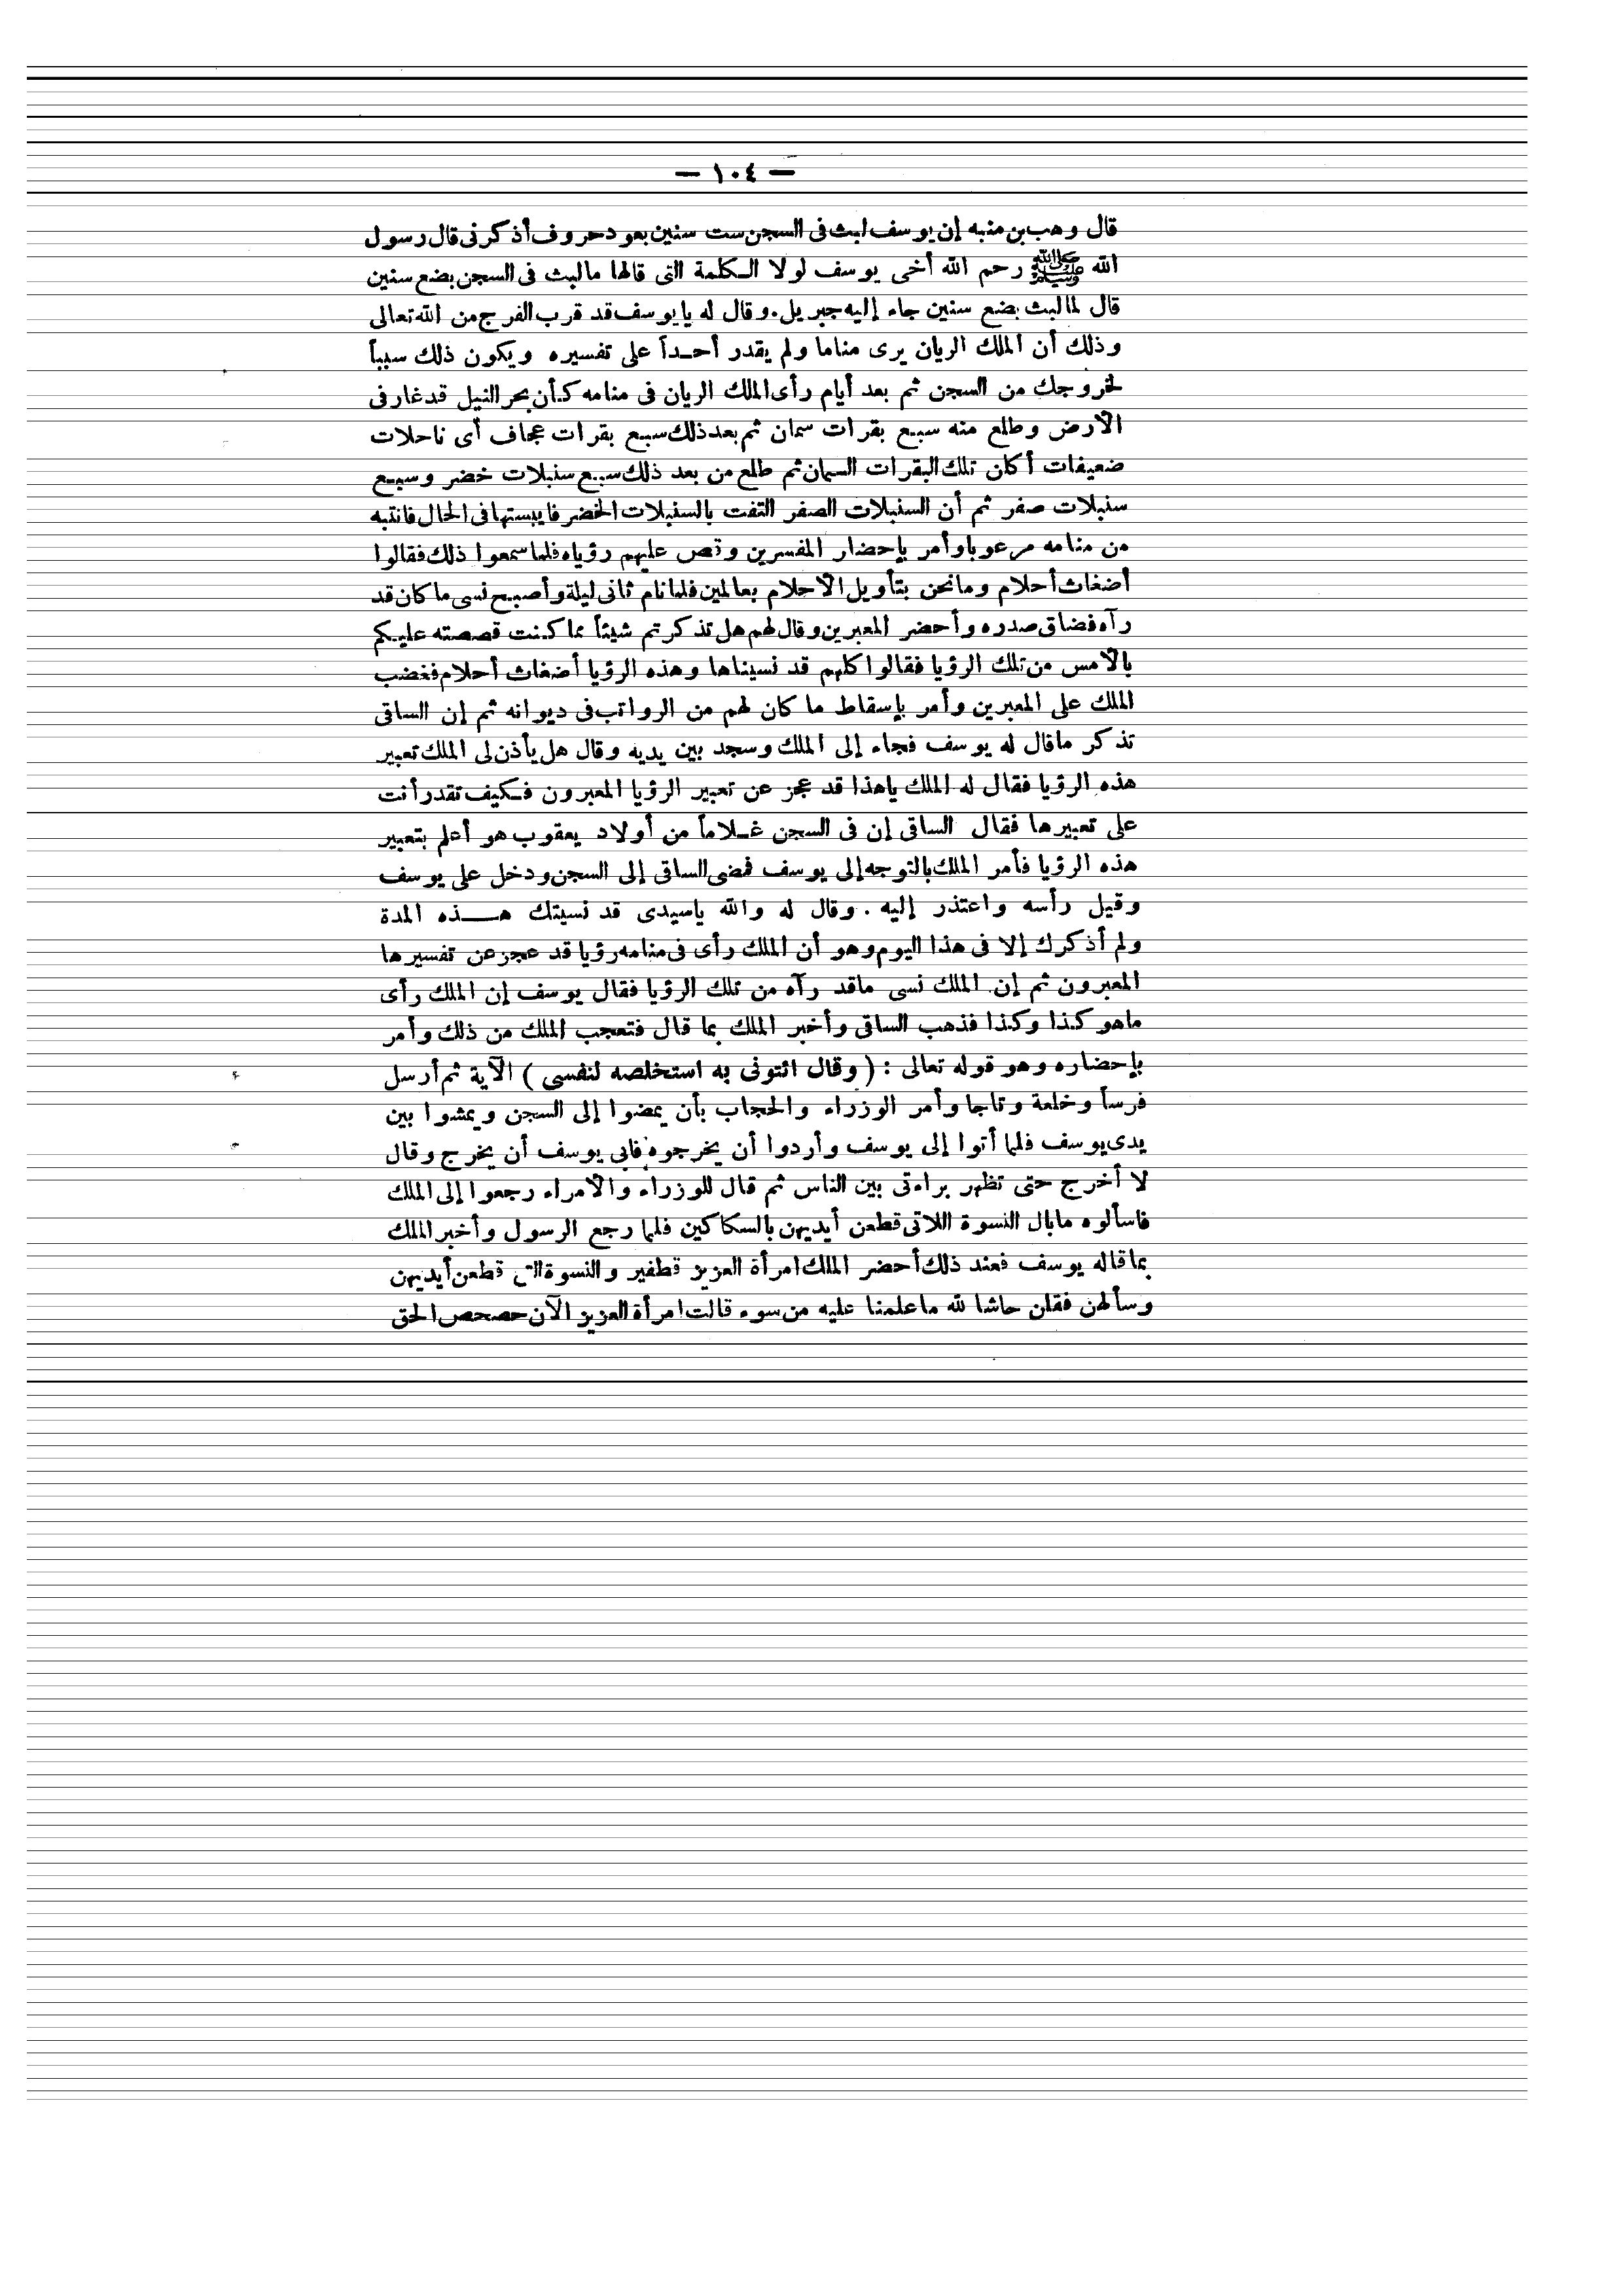 — ١٠٤ —
قال وهب بن منبه إن يوسف لبث فى السجن ست سنين بعود حروف أذكرنى قال رسول
الله ﷺ رحم الله أخى يوسف لولا الكلمة التى قالها مالبث فى السجن بضع سنين
قال لما لبث بضع سنين جاء إليه جبريل . وقال له يايوسف قد قرب الفرج من الله تعالى
وذلك أن الملك الريان يرى مناما ولم يقدر أحداً على تفسيره ويكون ذلك سبباً
لخروجك من السجن ثم بعد أيام رأى الملك الريان فى منامه كأن بحر النيل قد غار فى
الأرض وطلع منه سبع بقرات سمان ثم بعد ذلك سبع بقرات عجاف أى ناحلات
ضعيفات أكان تلك البقرات السمان ثم طلع من بعد ذلك سبع سنبلات خضر وسبع
سنبلات صفر ثم أن السنبلات الصفر التفت بالسنبلات الخضر فايبستها فى الحال فانتبه
من منامه مرعوبا وأمر بإحضار المفسرين وقص عليهم رؤياه فلما سمعوا ذلك فقالوا
أضغاث أحلام ومانحن بتأويل الأحلام بعالمين فلما نام ثانى ليلة وأصبح نسى ما كان قد
رآه فضاق صدره وأحضر المعبرين وقال لهم هل تذكرتم شيئاً مما كنت قصصته عليكم
بالأمس من تلك الرؤيا فقالوا كلهم قد نسيناها وهذه الرؤيا أضغاث أحلام فغضب
الملك على المعبرين وأمر بإسقاط ما كان لهم من الرواتب فى ديوانه ثم إن الساقى
تذكر ماقال له يوسف فجاء إلى الملك وسجد بين يديه وقال هل يأذن لى الملك تعبير
هذه الرؤيا فقال له الملك ياهذا قد عجز عن تعبير الرؤيا المعبرون فكيف تقدر أنت
على تعبيرها فقال الساقى إن فى السجن غلاماً من أولاد يعقوب هو أعلم بتعبير
هذه الرؤيا فأمر الملك بالتوجه إلى يوسف فمضى الساقى إلى السجن ودخل على يوسف
وقيل رأسه واعتذر إليه . وقال له والله ياسيدى قد نسيتك هذه المدة
ولم أذكرك إلا فى هذا اليوم وهو أن الملك رأى فى منامه رؤيا قد عجز عن تفسيرها
المعبرون ثم إن الملك نسى ماقد رآه من تلك الرؤيا فقال يوسف إن الملك رأى
ماهو كذا وكذا فذهب الساقى وأخبر الملك بما قال فتعجب الملك من ذلك وأمر
بإحضاره وهو قوله تعالى : ( وقال ائتونى به استخلصه لنفسى ) الآية ثم أرسل
فرساً وخلعة وتاجا وأمر الوزراء والحجاب بأن يمضوا إلى السجن ويمشوا بين
يدى يوسف فلما أتوا إلى يوسف وأردوا أن يخرجوه فابى يوسف أن يخرج وقال
لا أخرج حتى تظهر براءتى بين الناس ثم قال للوزراء والأمراء رجعوا إلى الملك
فاسألوه مابال النسوة اللاتى قطعن أيديهن بالسكاكين فلما رجع الرسول وأخبر الملك
بما قاله يوسف فعند ذلك أحضر الملك امرأة العزيز قطفير والنسوة التى قطعن أيديهن
وسألهن فقلن حاشا لله ماعلمنا عليه من سوء قالت امرأة العزيز الآن حصحص الحق